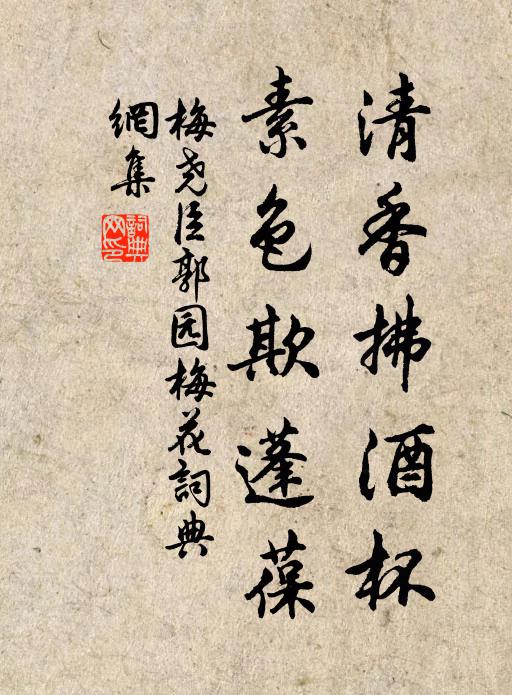 清香拂酒杯
素色欺蓬葆
梅尧臣郭园梅花詞典
網集
詞典网印